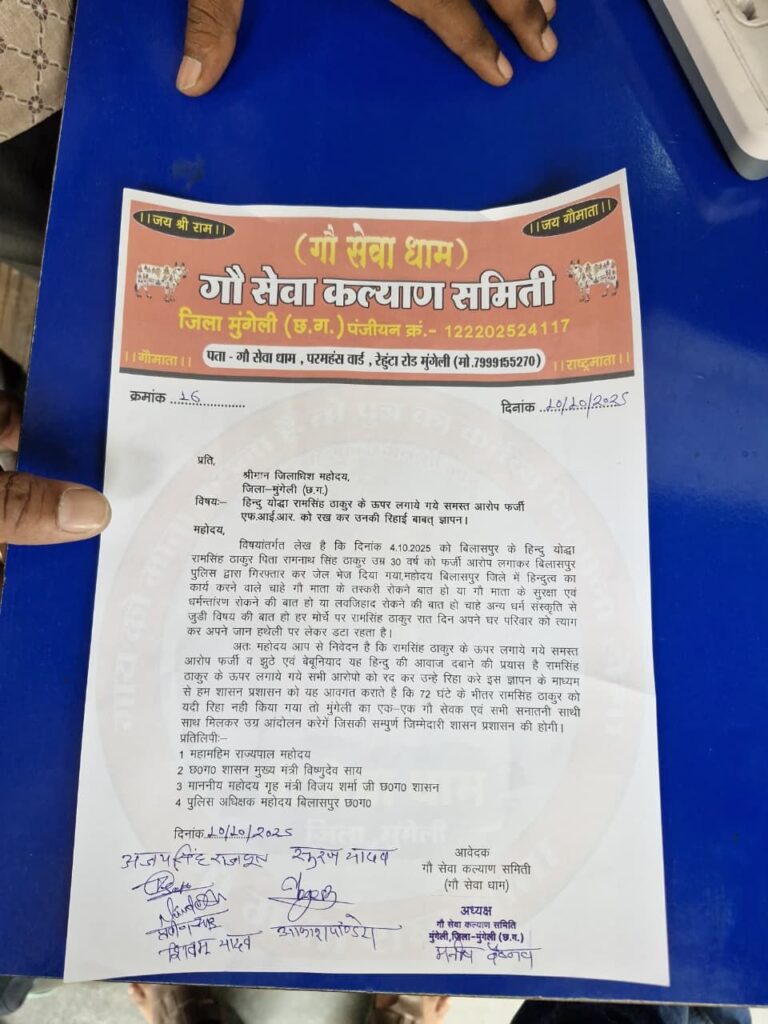 ||जय श्री राम||
||जय गौमाता||
(गौ सेवा धाम)
गौ सेवा कल्याण समिति
जिला मुंगेली (छ.ग.) पंजीयन क्रं.- 122202524117
||गौमाता||
पता - गौ सेवा धाम , परमहंस वार्ड , रेहुंटा रोड मुंगेली (मो.7999155270)
||राष्ट्रमाता||
क्रमांक 16
दिनांक 10/10/2025
प्रति,
श्रीमान जिलाधिश महोदय,
जिला–मुंगेली (छ.ग.)
विषयः– हिन्दु योद्धा रामसिंह ठाकुर के ऊपर लगाये गये समस्त आरोप फर्जी
एफ.आई.आर. को रख कर उनकी रिहाई बाबत् ज्ञापन।
महोदय,
विषयांतर्गत लेख है कि दिनांक 4.10.2025 को बिलासपुर के हिन्दु योद्धा
रामसिंह ठाकुर पिता रामनाथ सिंह ठाकुर उम्र 30 वर्ष को फर्जी आरोप लगाकर बिलासपुर
पुलिस द्वारा गिरफ्तार कर जेल भेज दिया गया,महोदय बिलासपुर जिले में हिन्दुत्व का
कार्य करने वाले चाहे गौ माता के तस्करी रोकने बात हो या गौ माता के सुरक्षा एवं
धर्मन्तांरण रोकने की बात हो या लवजिहाद रोकने की बात हो चाहे अन्य धर्म संस्कृति से
जुडी विषय की बात हो हर मोर्चे पर रामसिंह ठाकुर रात दिन अपने घर परिवार को त्याग
कर अपने जान हथेली पर लेकर डटा रहता है।
अतः महोदय आप से निवेदन है कि रामसिंह ठाकुर के ऊपर लगाये गये समस्त
आरोप फर्जी व झुठे एवं बेबूनियाद यह हिन्दु की आवाज दबाने की प्रयास है रामसिंह
ठाकुर के ऊपर लगाये गये सभी आरोपो को रद कर उन्हे रिहा करे इस ज्ञापन के माध्यम
से हम शासन प्रशासन को यह आवगत कराते है कि 72 घंटे के भीतर रामसिंह ठाकुर को
यदी रिहा नही किया गया तो मुंगेली का एक–एक गौ सेवक एवं सभी सनातनी साथी
साथ मिलकर उग्र आंदोलन करेगें जिसकी सम्पुर्ण जिम्मेदारी शासन प्रशासन की होगी।
प्रतिलिपीः–
1 महामहिम राज्यपाल महोदय
2 छ0ग0 शासन मुख्य मंत्री विष्णुदेव साय
3 माननीय महोदय गृह मंत्री विजय शर्मा जी छ0ग0 शासन
4 पुलिस अधिक्षक महोदय बिलासपुर छ0ग0
दिनांक 10/10/2025
अजय सिंह राजपूत सूरज यादव
आवेदक
गौ सेवा कल्याण समिती
(गौ सेवा धाम)
शिवम यादव आकाश पाण्डेय
अध्यक्ष
गौ सेवा कल्याण समिति
मुंगेली,जिला-मुंगेली (छ.ग.)
मनीष वैष्णव